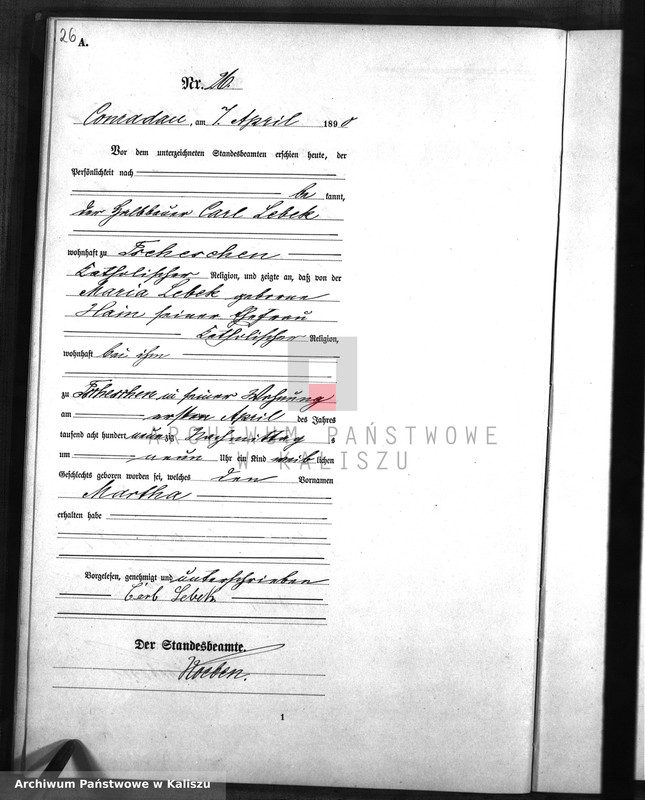 26
A.
Nr. 26.
Conradau, am 7. April 1890
Vor dem unterzeichneten Standesbeamten erschien heute, der
Persönlichkeit nach
be kannt,
der Halbbauer Carl Lebek
wohnhaft zu Tscheschen
Katholischer Religion, und zeigte an, daß von der
Maria Lebek geborene
Hain seiner Ehefrau
Katholischer Religion,
wohnhaft bei ihm
zu Tscheschen in seiner Wohnung
am ersten April des Jahres
tausend acht hundert neunzig Nachmittag s
um neun Uhr ein Kind weib lichen
Geschlechts geboren worden sei, welches den Vornamen
Martha
erhalten habe
Vorgelesen, genehmigt und unterschrieben
Carl Lebek
Der Standesbeamte.
1
ARCHIWUM PAŃSTWOWE
W KALISZU
Archiwum Państwowe w Kaliszu